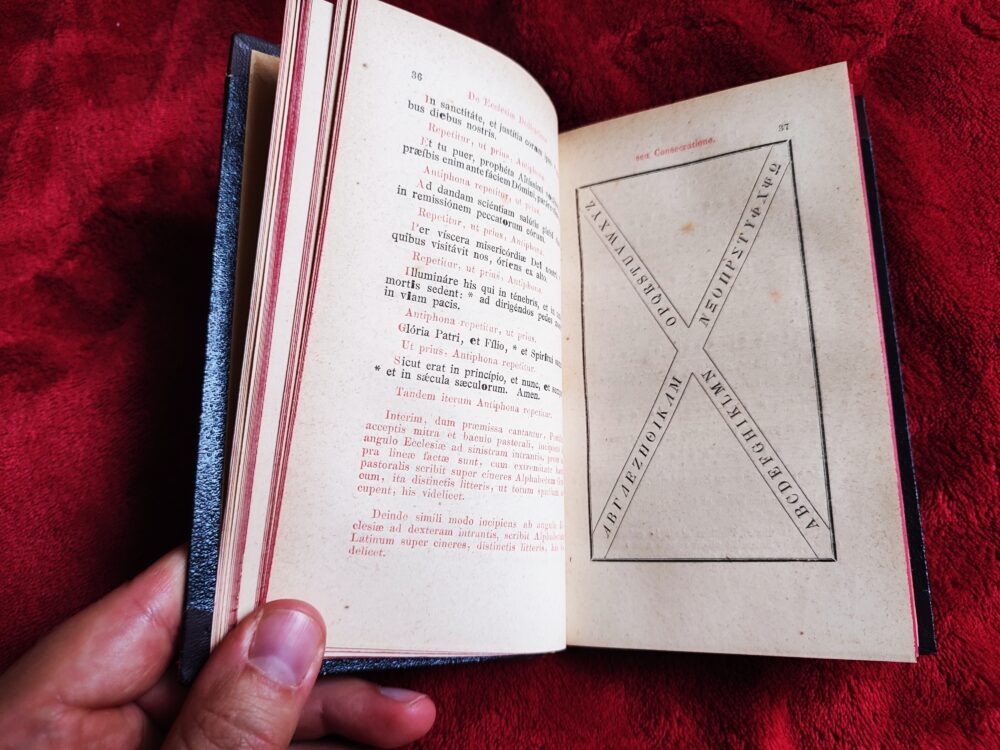 36
De Ecclesiæ
In sanctitáte, et justítia coram
bus diebus nostris.
Repetitur, ut prius, Antiphona.
Et tu puer, prophéta Altíssimi
præíbis enim ante fáciem Dómini,
Antiphona repetitur, ut prius.
Ad dandam sciéntiam salútis plebi
in remissiónem peccatorum eórum.
Repetitur, ut prius, Antiphona.
Per víscera misericórdiæ Dei nostri,
quibus visitávit nos, óriens ex alto.
Repetitur, ut prius, Antiphona.
Illumináre his qui in ténebris, et in
mortis sedent: * ad dirigéndos pedes
in viam pacis.
Antiphona repetitur, ut prius.
Glória Patri, et Fílio, * et Spirítui
Ut prius, Antiphona repetitur.
Sicut erat in princípio, et nunc, et
* et in sǽcula sæculorum. Amen.
Tandem iterum Antiphona repetitur.
Interim, dum præmissa cantantur,
acceptis mitra et baculo pastorali, incipiens
angulo Ecclesiæ ad sinistram intrantis, prout
pra lineæ factæ sunt, cum extremitate
pastoralis scribit super cineres Alphabetum
cum, ita distinctis litteris, ut totum spatium
cupent, his videlicet.
Deinde simili modo incipiens ab angulo
clesiæ ad dexteram intrantis, scribit Alphabetum
Latinum super cineres, distinctis litteris, his
delicet.
37
seu Consecratione.
ΑΒΓΔΕΖΗΘΙΚΛΜ
ΝΞΟΠΡΣΤΥΦΧΨΩ
ABCDEFGHIKLMN
OPQRSTUVWXYZ